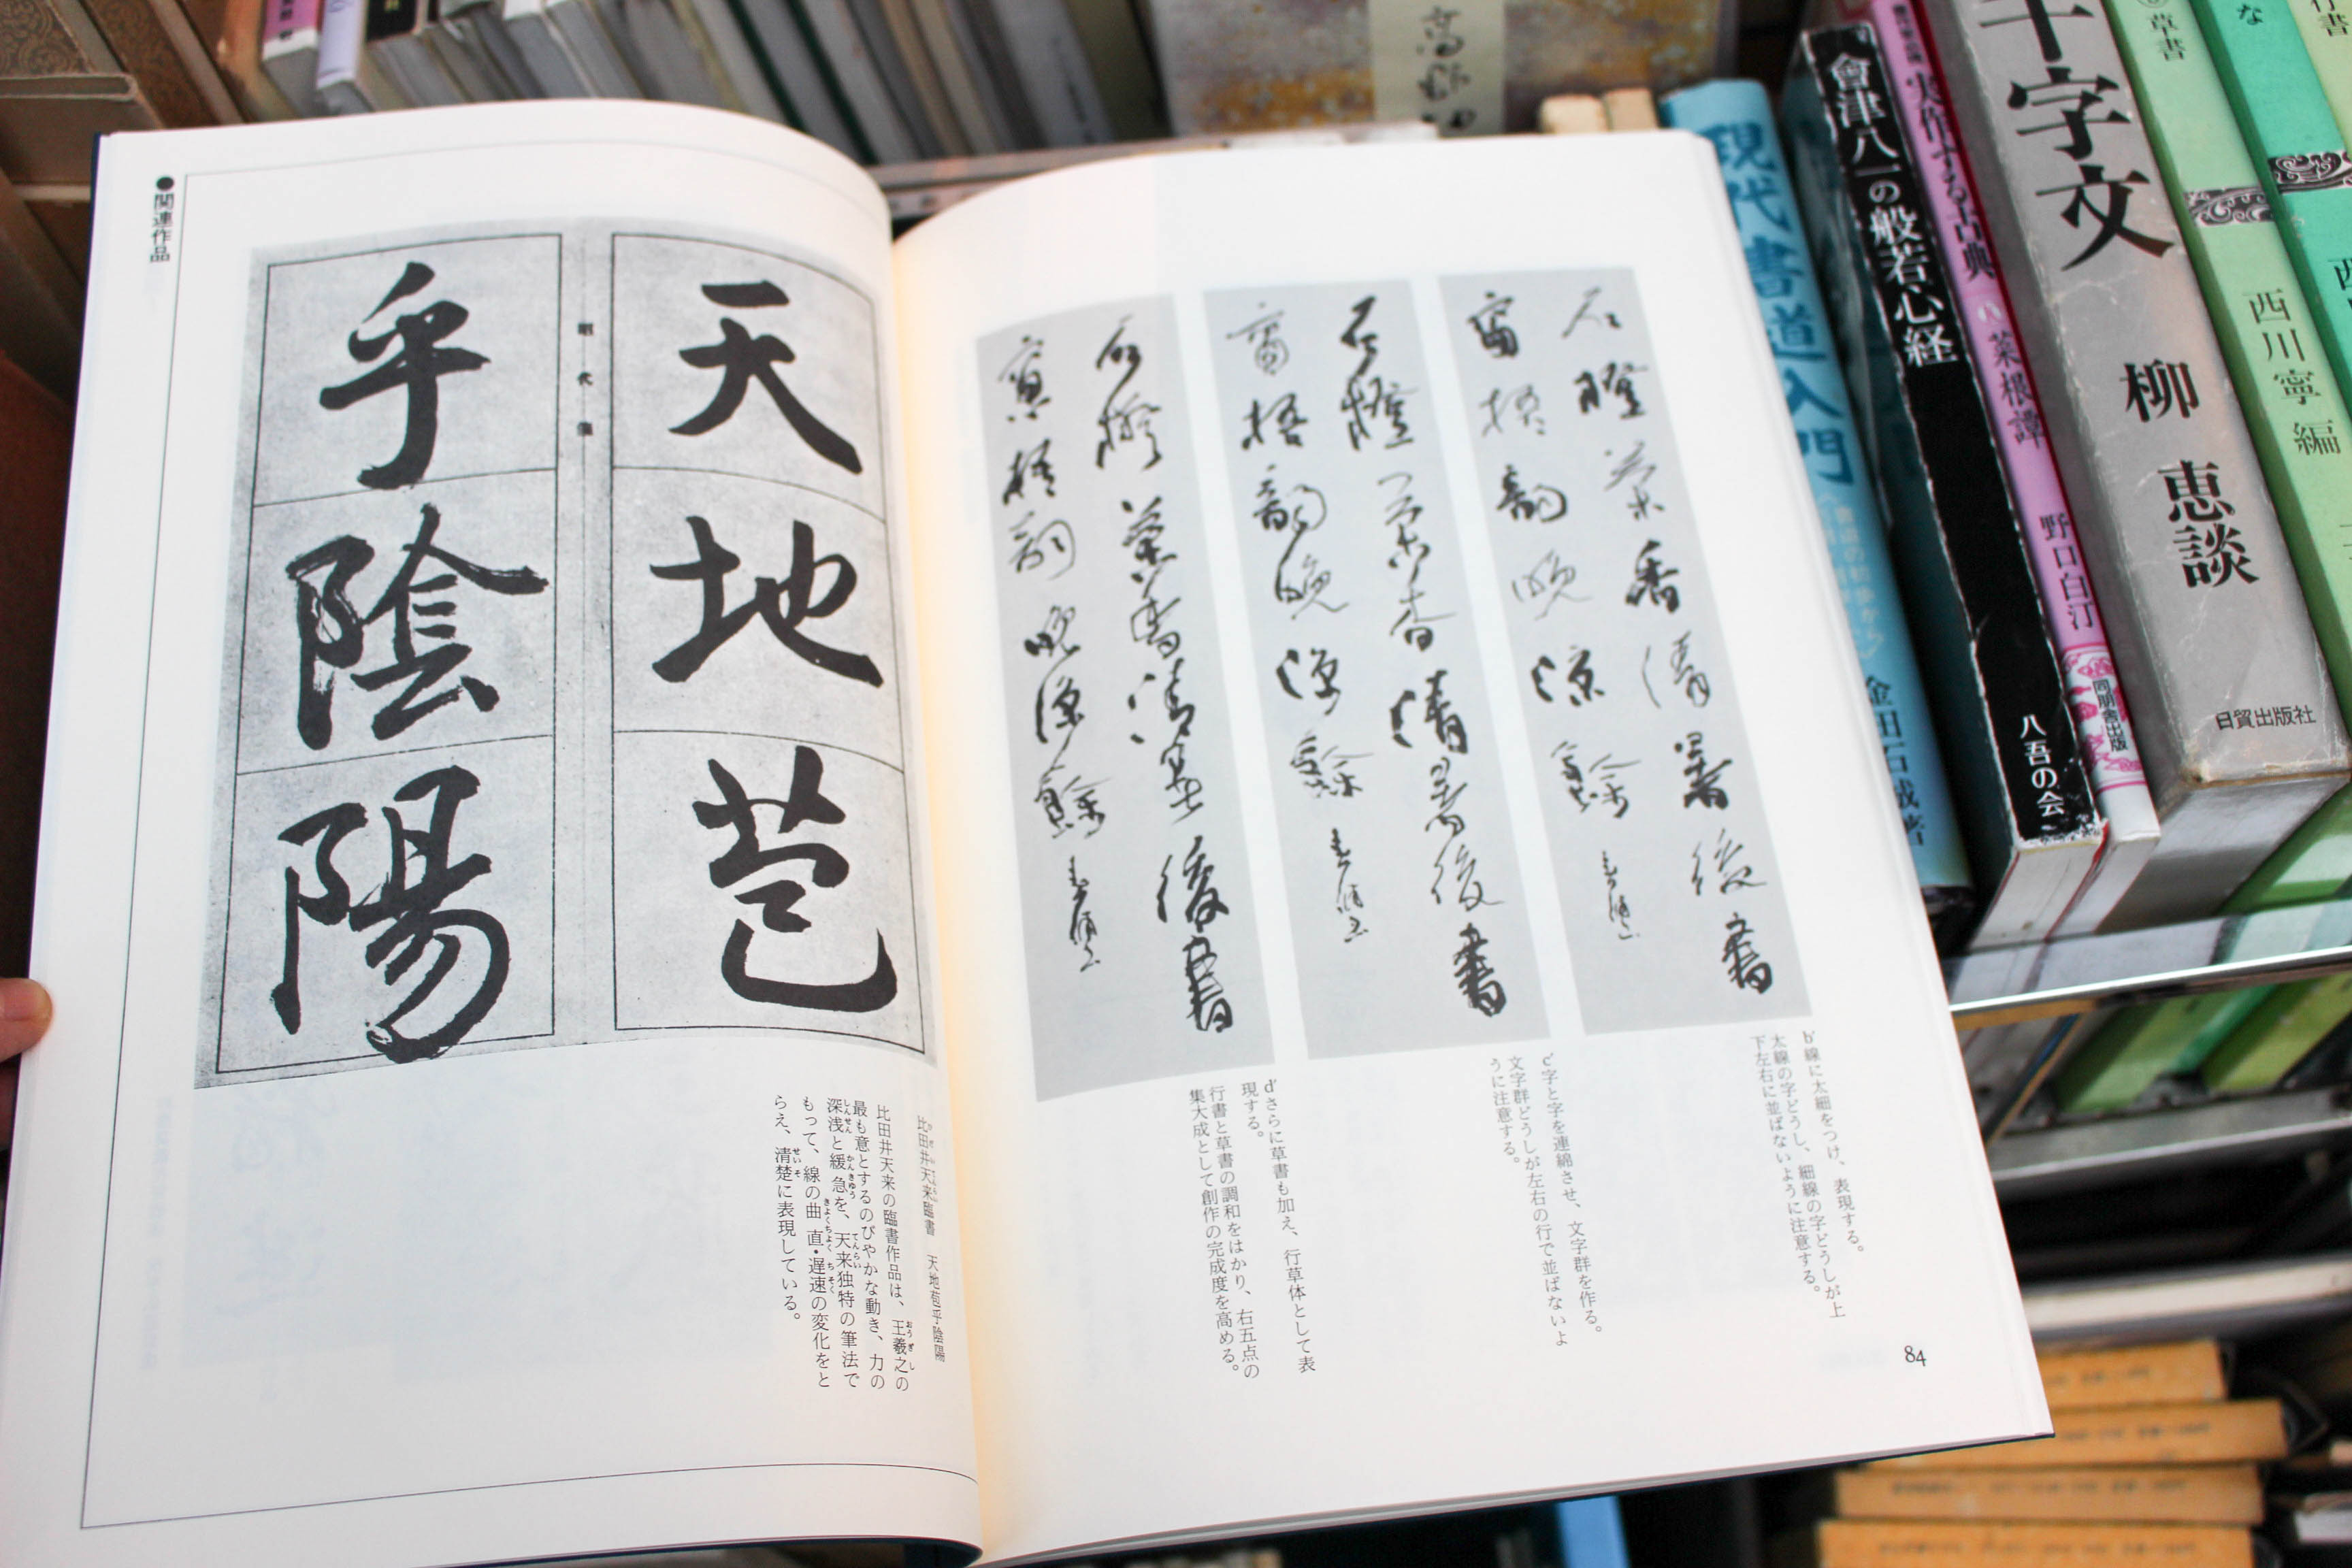 石磴茶香清暑後書
窗梧韵晩涼餘
石磴茶香清暑後書
窗梧韵晩涼餘
石磴茶香清暑後書
窗梧韵晩涼餘
b′線に太細をつけ、表現する。
太線の字どうし、細線の字どうしが上
下左右に並ばないように注意する。
c′字と字を連綿させ、文字群を作る。
文字群どうしが左右の行で並ばないよ
うに注意する。
d′さらに草書も加え、行草体として表
現する。
行書と草書の調和をはかり、右五点の
集大成として創作の完成度を高める。
84
天地苞
乎陰陽
●関連作品
比田井天来臨書　天地苞乎陰陽
比田井天来の臨書作品は、王羲之の
最も意とするのびやかな動き、力の
深浅と緩急を、天来独特の筆法で
もって、線の曲直・遅速の変化をと
らえ、清楚に表現している。
現代書道入門
金田石城著
會津八一の般若心経
八吾の会
実作する古典
菜根譚
野口白汀
同朋舎出版
千字文
柳恵談
日貿出版社
草書
西川寧編
行書